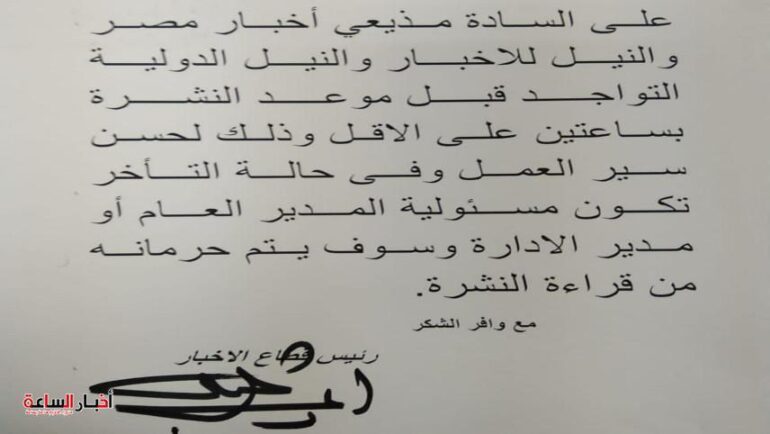 على السادة مذيعي أخبار مصر
والنيل للاخبار والنيل الدولية
التواجد قبل موعد النشرة
بساعتين على الاقل وذلك لحسن
سير العمل وفى حالة التأخر
تكون مسئولية المدير العام أو
مدير الادارة وسوف يتم حرمانه
من قراءة النشرة.
مع وافر الشكر
رئيس قطاع الاخبار
أخبار الساعة